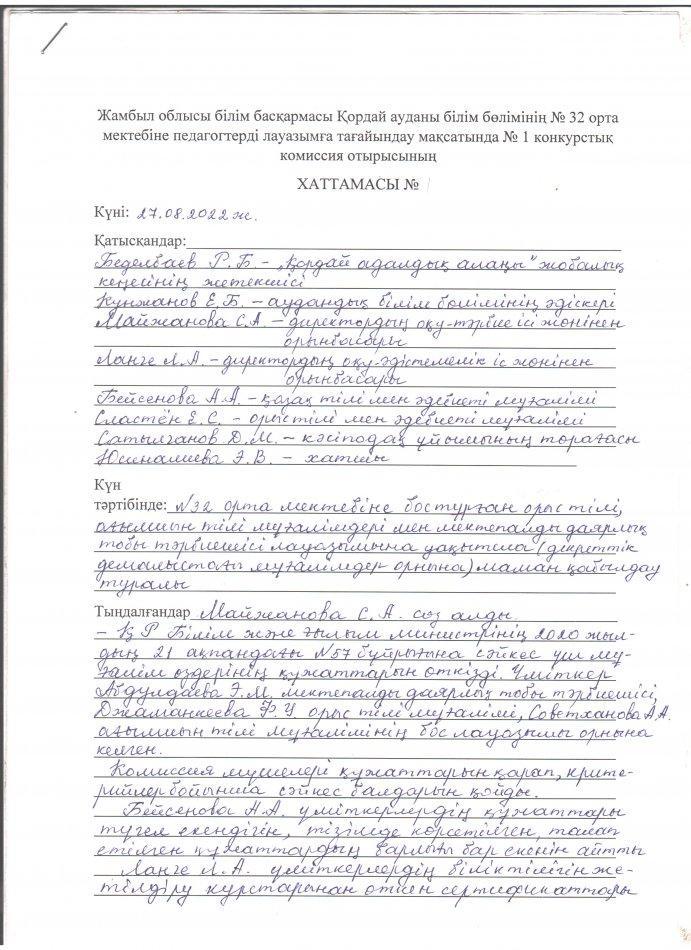 Жамбыл облысы білім басқармасы Қордай ауданы білім бөлімінің № 32 орта
мектебіне педагогтерді лауазымға тағайындау мақсатында № 1 конкурстық
комиссия отырысының
ХАТТАМАСЫ № 1
Күні: 27.08.2022ж.
Қатысқандар:
Беделбаев Р.Б. – „Қордай адалдық алаңы" жобалық
кеңесінің жетекшісі
Кунжанов Е.Б. – аудандық білім бөлімінің әдіскері
Майжанова С.А. – директордың оқу-тәрбие ісі жөнінен
орынбасары
Ланге Л.А. – директордың оқу-әдістемелік іс жөнінен
орынбасары
Бейсенова А.А. – қазақ тілі мен әдебиеті мұғалімі
Сластён Е.С. – орыс тілі мен әдебиеті мұғалімі
Сатылганов Д.М. – кәсіподақ ұйымының төрағасы
Юсиналиева Э.В. – хатшы
Күн
тәртібінде: N32 орта мектебіне бос тұрған орыс тілі,
ағылшын тілі мұғалімдері мен мектепалды даярлық
тобы тәрбиешісі лауазымына уақытша (декреттік
демалыстағы мұғалімдер орнына) маман қабылдау
туралы
Тыңдалғандар Майжанова С.А. сөз алды.
– ҚР Білім және ғылым министрінің 2020 жыл-
дың 21 ақпандағы N57 бұйрығына сәйкес үш мұ-
ғалім өздерінің құжаттарын өткізді. Үміткер
Абдулдаева Э.М. мектепалды даярлық тобы тәрбиешісі,
Джаманкеева Ф.У. орыс тілі мұғалімі, Советханова А.А.
ағылшын тілі мұғалімінің бос лауазымы орнына
келген.
Комиссия мүшелері құжаттарын қарап, крите-
рийлер бойынша сәйкес балдарын қойды.
Бейсенова А.А. үміткерлердің құжаттары
түгел екендігін, тізімде көрсетілген, талап
етілген құжаттардың барлығы бар екенін айтты
Ланге Л.А. үміткерлердің біліктілігін же-
тілдіру курстарынан өткен сертификаттары